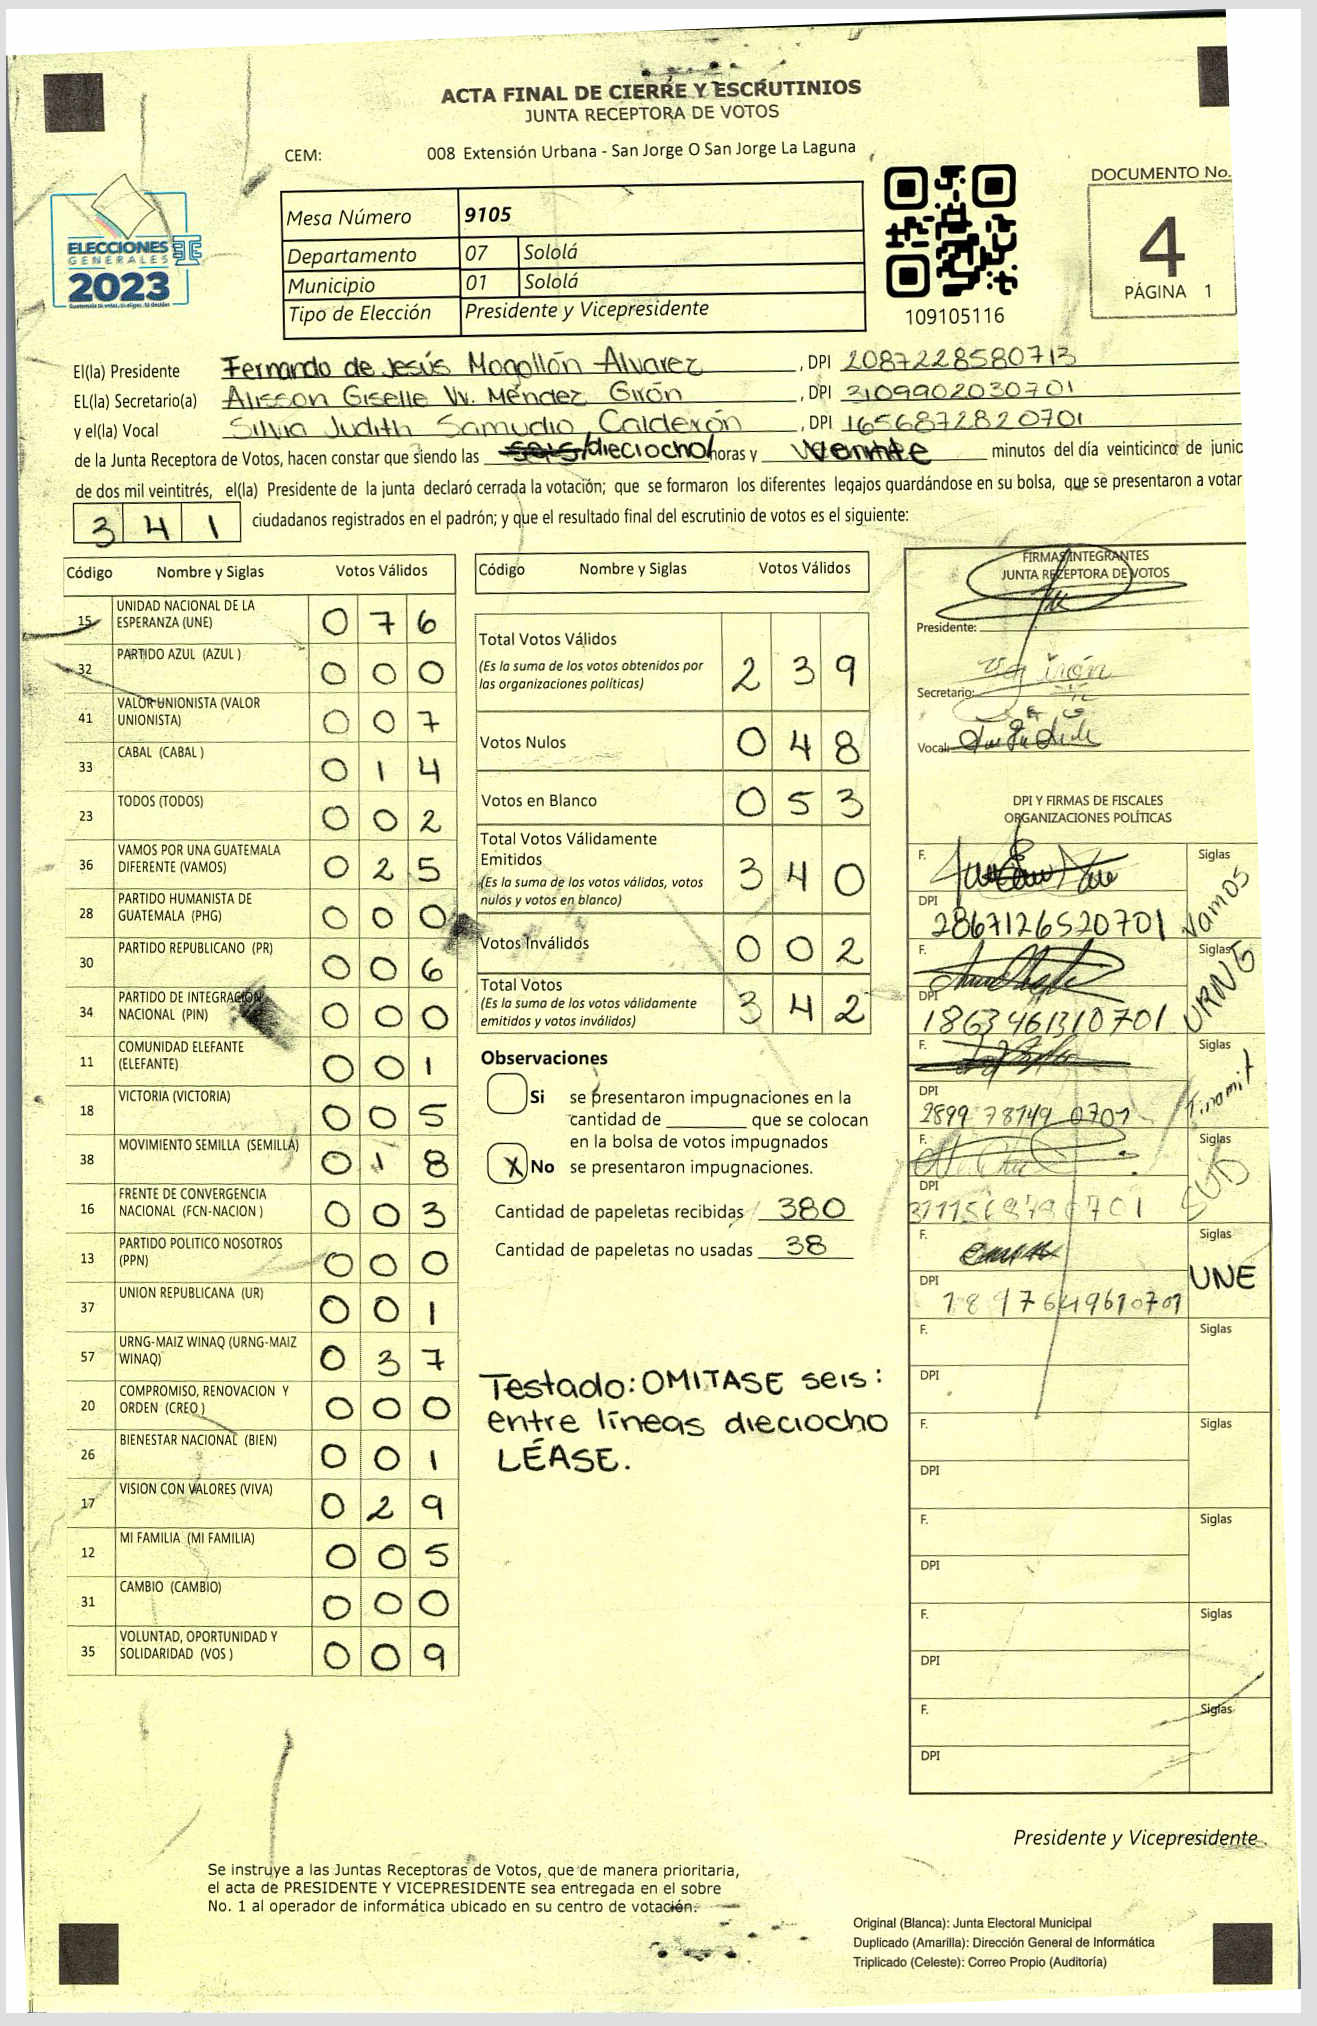 ACTA FINAL DE CIERRE Y ESCRUTINIOS
JUNTA RECEPTORA DE VOTOS
CEM: 008 Extensión Urbana - San Jorge O San Jorge La Laguna
ELECCIONES
GENERALES
2023
Mesa Número 9105
Departamento 07 Sololá
Municipio 01 Sololá
Tipo de Elección Presidente y Vicepresidente
109105116
DOCUMENTO No.
4
PÁGINA 1
El(la) Presidente Fernando de Jesús Mogollón Alvarez, DPI 2087228580713
EL(la) Secretario(a) Alisson Giselle W. Méndez Girón, DPI 3109902030701
y el(la) Vocal Silvia Judith Samudio Calderón, DPI 1656872820701
de la Junta Receptora de Votos, hacen constar que siendo las seis/dieciocho/horas y veinte minutos del día veinticinco de junic
de dos mil veintitrés, el(la) Presidente de la junta declaró cerrada la votación; que se formaron los diferentes legajos quardándose en su bolsa, que se presentaron a votar
3 4 1 ciudadanos registrados en el padrón; y que el resultado final del escrutinio de votos es el siguiente:
Código Nombre y Siglas Votos Válidos
15 UNIDAD NACIONAL DE LA ESPERANZA (UNE) 0 7 6
32 PARTIDO AZUL (AZUL ) 0 0 0
41 VALOR UNIONISTA (VALOR UNIONISTA) 0 0 7
33 CABAL (CABAL ) 0 1 4
23 TODOS (TODOS) 0 0 2
36 VAMOS POR UNA GUATEMALA DIFERENTE (VAMOS) 0 2 5
28 PARTIDO HUMANISTA DE GUATEMALA (PHG) 0 0 0
30 PARTIDO REPUBLICANO (PR) 0 0 6
34 PARTIDO DE INTEGRACION NACIONAL (PIN) 0 0 0
11 COMUNIDAD ELEFANTE (ELEFANTE) 0 0 1
18 VICTORIA (VICTORIA) 0 0 5
38 MOVIMIENTO SEMILLA (SEMILLA) 0 1 8
16 FRENTE DE CONVERGENCIA NACIONAL (FCN-NACION ) 0 0 3
13 PARTIDO POLITICO NOSOTROS (PPN) 0 0 0
37 UNION REPUBLICANA (UR) 0 0 1
57 URNG-MAIZ WINAQ (URNG-MAIZ WINAQ) 0 3 7
20 COMPROMISO, RENOVACION Y ORDEN (CREO ) 0 0 0
26 BIENESTAR NACIONAL (BIEN) 0 0 1
17 VISION CON VALORES (VIVA) 0 2 9
12 MI FAMILIA (MI FAMILIA) 0 0 5
31 CAMBIO (CAMBIO) 0 0 0
35 VOLUNTAD, OPORTUNIDAD Y SOLIDARIDAD (VOS ) 0 0 9
Código Nombre y Siglas Votos Válidos
Total Votos Válidos 2 3 9
(Es la suma de los votos obtenidos por
las organizaciones políticas)
Votos Nulos 0 4 8
Votos en Blanco 0 5 3
Total Votos Válidamente
Emitidos 3 4 0
(Es la suma de los votos válidos, votos
nulos y votos en blanco)
Votos Inválidos 0 0 2
Total Votos 3 4 2
(Es la suma de los votos válidamente
emitidos y votos inválidos)
Observaciones
Si se presentaron impugnaciones en la
cantidad de ________ que se colocan
en la bolsa de votos impugnados
X No se presentaron impugnaciones.
Cantidad de papeletas recibidas 380
Cantidad de papeletas no usadas 38
Testado: OMITASE seis:
entre líneas dieciocho
LÉASE.
FIRMAS INTEGRANTES
JUNTA RECEPTORA DE VOTOS
Presidente:
Secretario:
Vocal:
DPI Y FIRMAS DE FISCALES
ORGANIZACIONES POLÍTICAS
F. Siglas
DPI 2867126520701 Vamos
F. Siglas
DPI 1863461310701 URNG
F. Siglas
DPI 2899 78149 0701 Tinamit
F. Siglas
DPI
F. Siglas
DPI UNE
F. Siglas
DPI
F. Siglas
DPI
F. Siglas
DPI
F. Siglas
DPI
F. Siglas
DPI
Presidente y Vicepresidente
Se instruye a las Juntas Receptoras de Votos, que de manera prioritaria,
el acta de PRESIDENTE Y VICEPRESIDENTE sea entregada en el sobre
No. 1 al operador de informática ubicado en su centro de votación.
Original (Blanca): Junta Electoral Municipal
Duplicado (Amarilla): Dirección General de Informática
Triplicado (Celeste): Correo Propio (Auditoría)